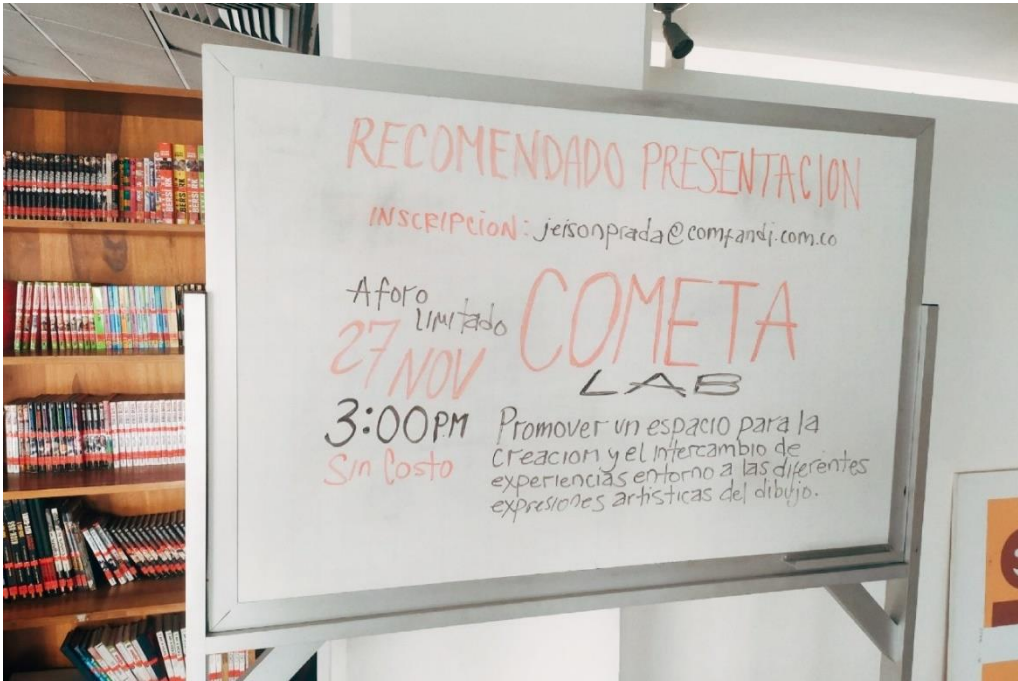 RECOMENDADO PRESENTACION
INSCRIPCION: jeisonprada@comfandi.com.co
Aforo
LIMITADO
27
NOV
3:00PM
Sin Costo
COMETA
LAB
Promover un espacio para la
creacion y el intercambio de
experiencias entorno a las diferentes
expresiones artisticas del dibujo.